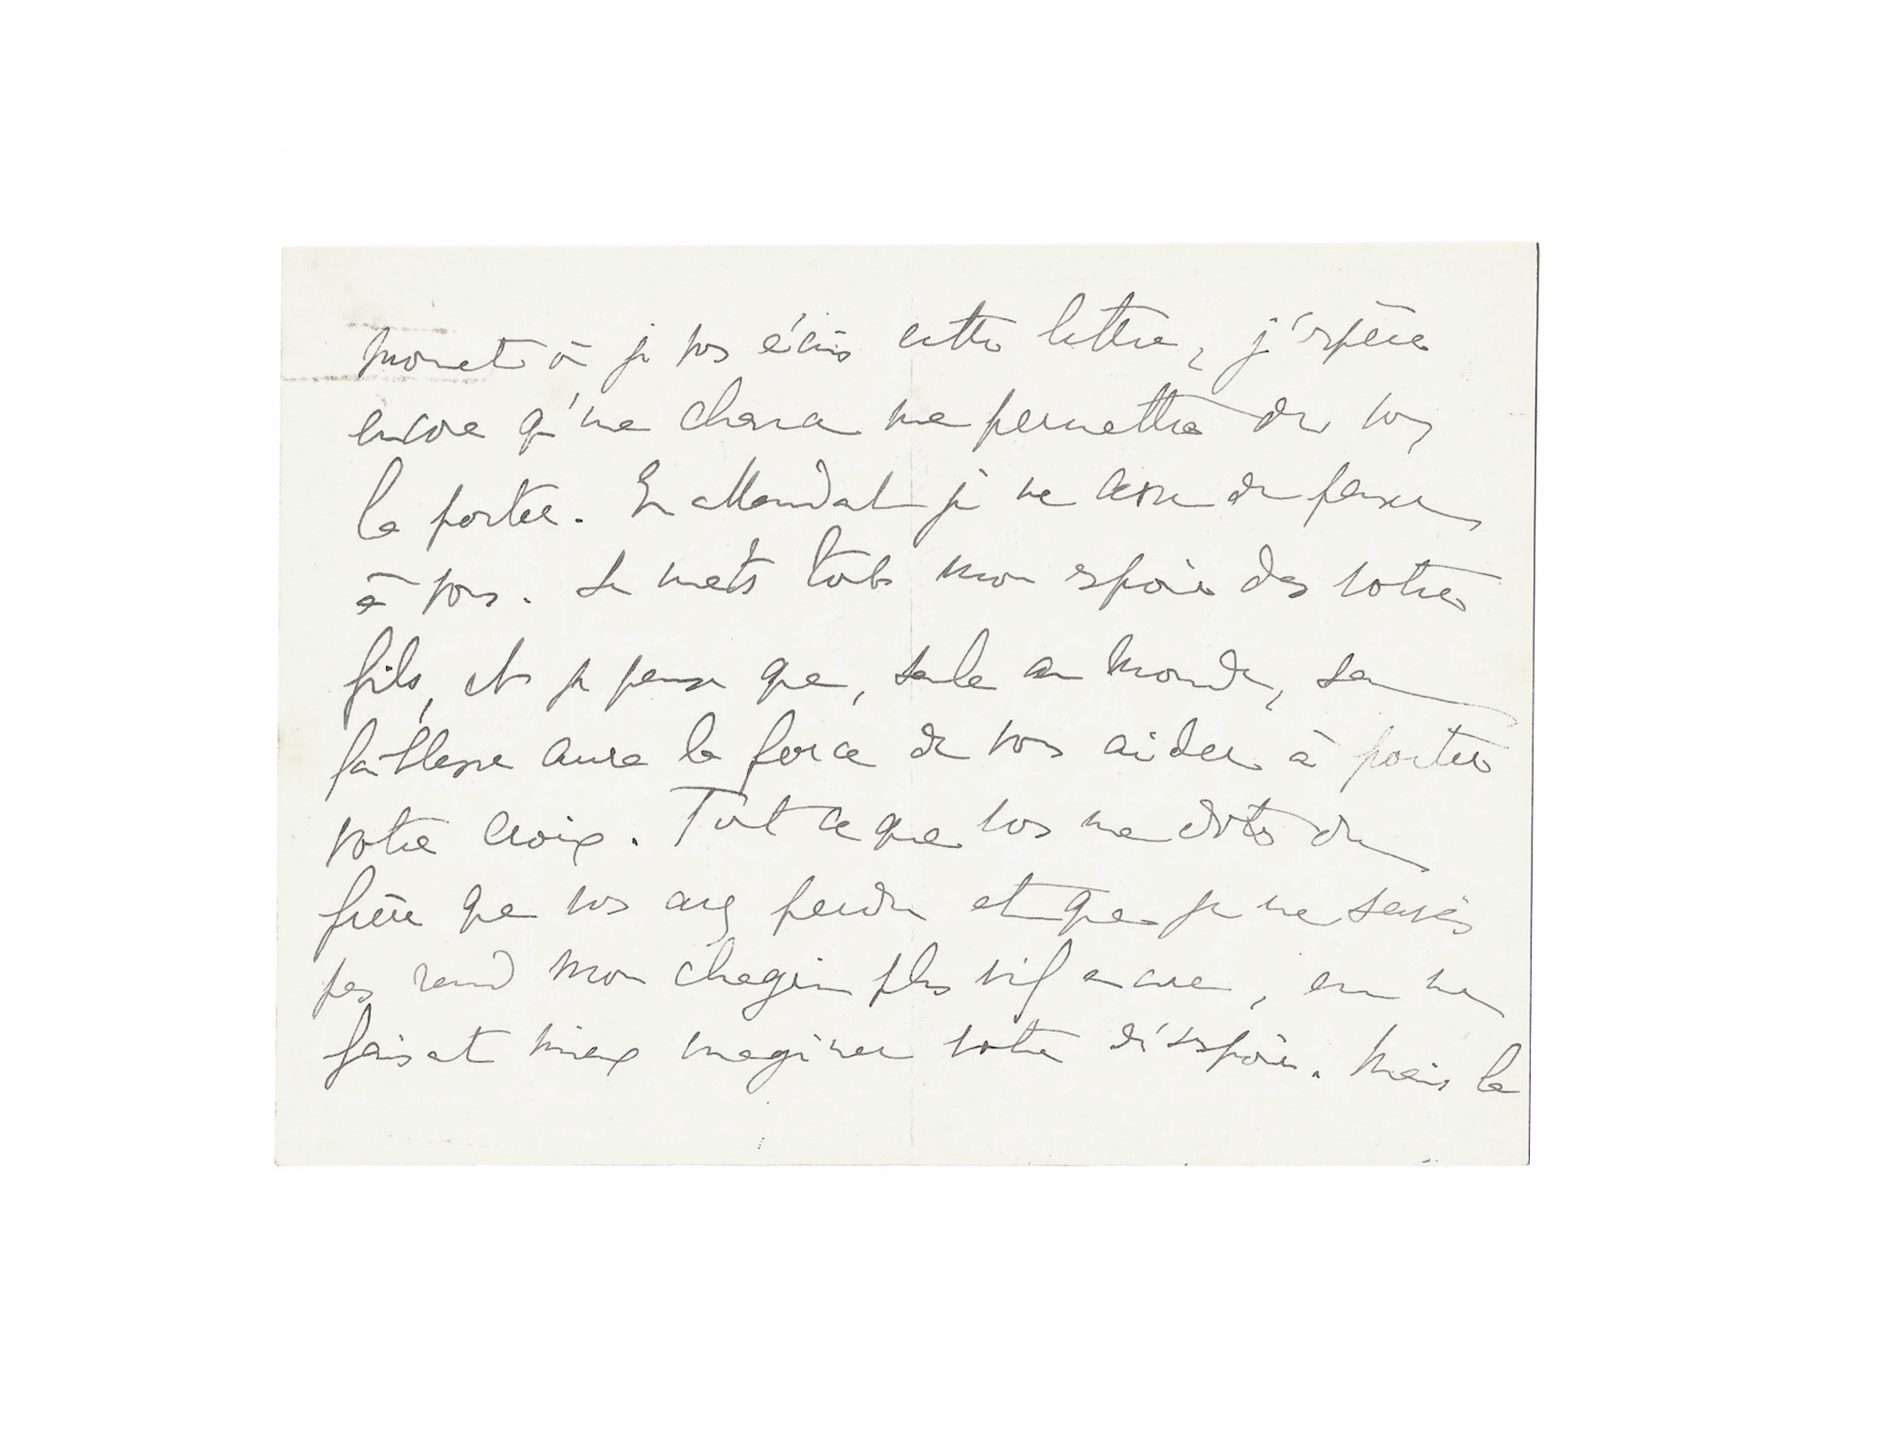 moment où je vous écris cette lettre, j'espère
encore qu'une chance me permettra de vous
la porter. En attendant je ne cesse de penser
à vous. Je mets tout mon espoir dans votre
fils, et je pense que, seule au monde, sa
faiblesse aura la force de vous aider à porter
votre croix. Tout ce que vous me dites du
frère que vous avez perdu et que je ne savais
pas rend mon chagrin plus vif encore, en me
faisant mieux imaginer votre désespoir. Mais la